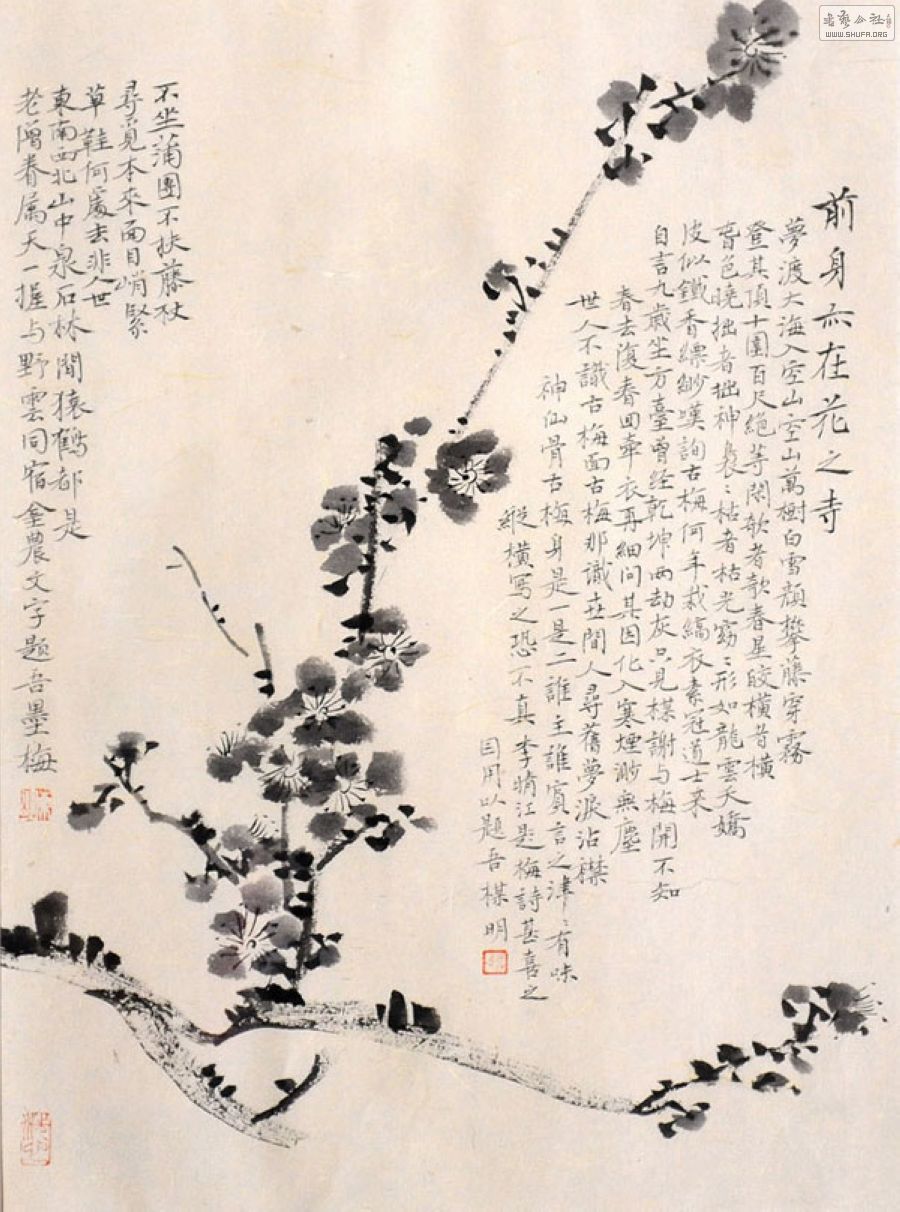 前身亦在花之寺
夢渡大海入空山空山萬樹白雪顏攀藤穿霧
登其頂十圍百尺絕等閑欹者欹春星皎橫者橫
窅色曉拙者拙神裊:枯者枯光窈:形如龍雲夭嬌
皮似鐵香縹緲嘆詢古梅何年栽縞衣素冠道士来
自言九歲坐方臺曾经乾坤兩劫灰只見楳謝与梅開不知
春去復春回牽衣再細問其因化入寒煙渺無塵
世人不識古梅面古梅那識世間人尋舊夢淚沾襟
神仙骨古梅身是一是二誰主誰賓言之津:有味
縱横寫之恐不真 李晴江題梅詩甚喜之
因用以題吾楳 明
不坐蒲團不扶藤杖
尋覓本來面目峭緊
草鞋何處去非人世
東南西北山中泉石林間猿鶴都是
老僧眷屬天一握与野雲同宿 金農文字題吾墨梅
書藝公社
WWW.SHUFA.ORG